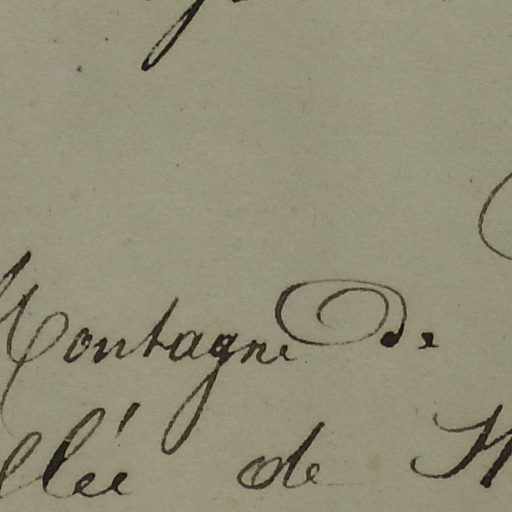 Montagne de
llée de